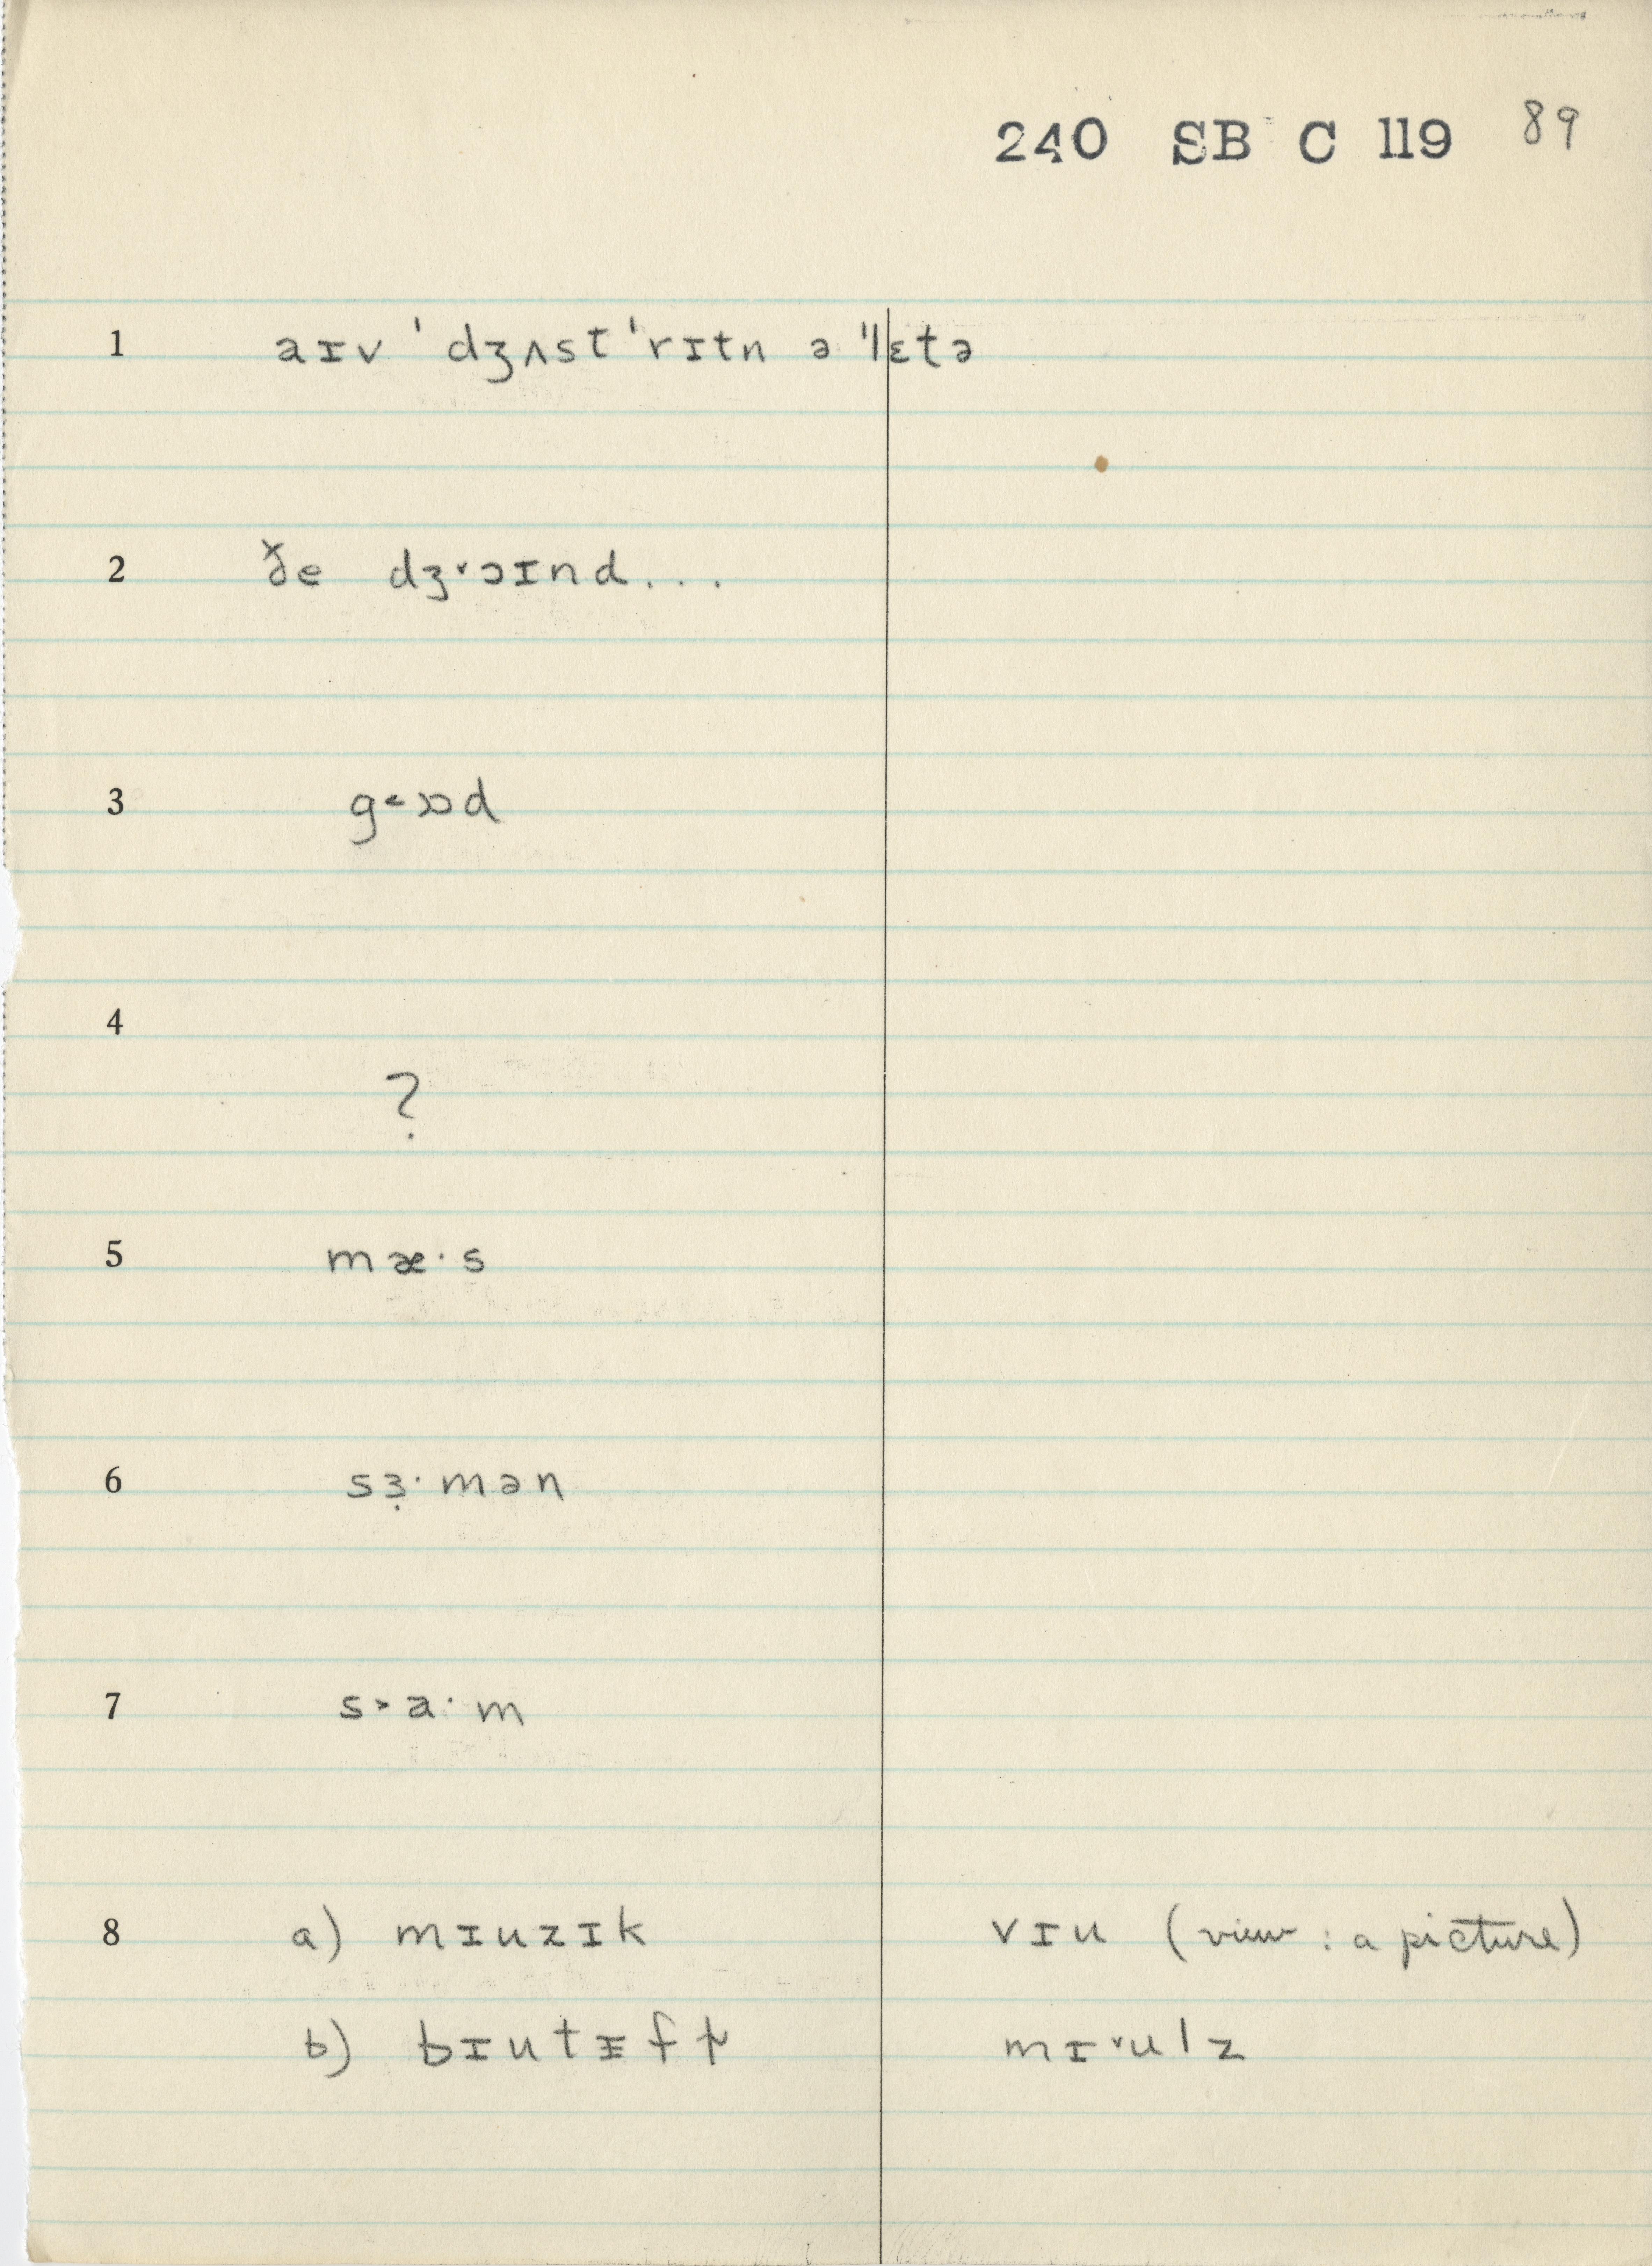 240 SB C 119 89
1 aɪv 'dʒʌst 'rɪtn ə "lɛtə
2 ðe dʒ˅ɔɪnd...
3 g˂ɒd
4
?
5 mæ·s
6 sɜ̣·mən
7 s˃a·m
8 a) mɪuzɪk vɪu (view : a picture)
b) mɪ˅ulz